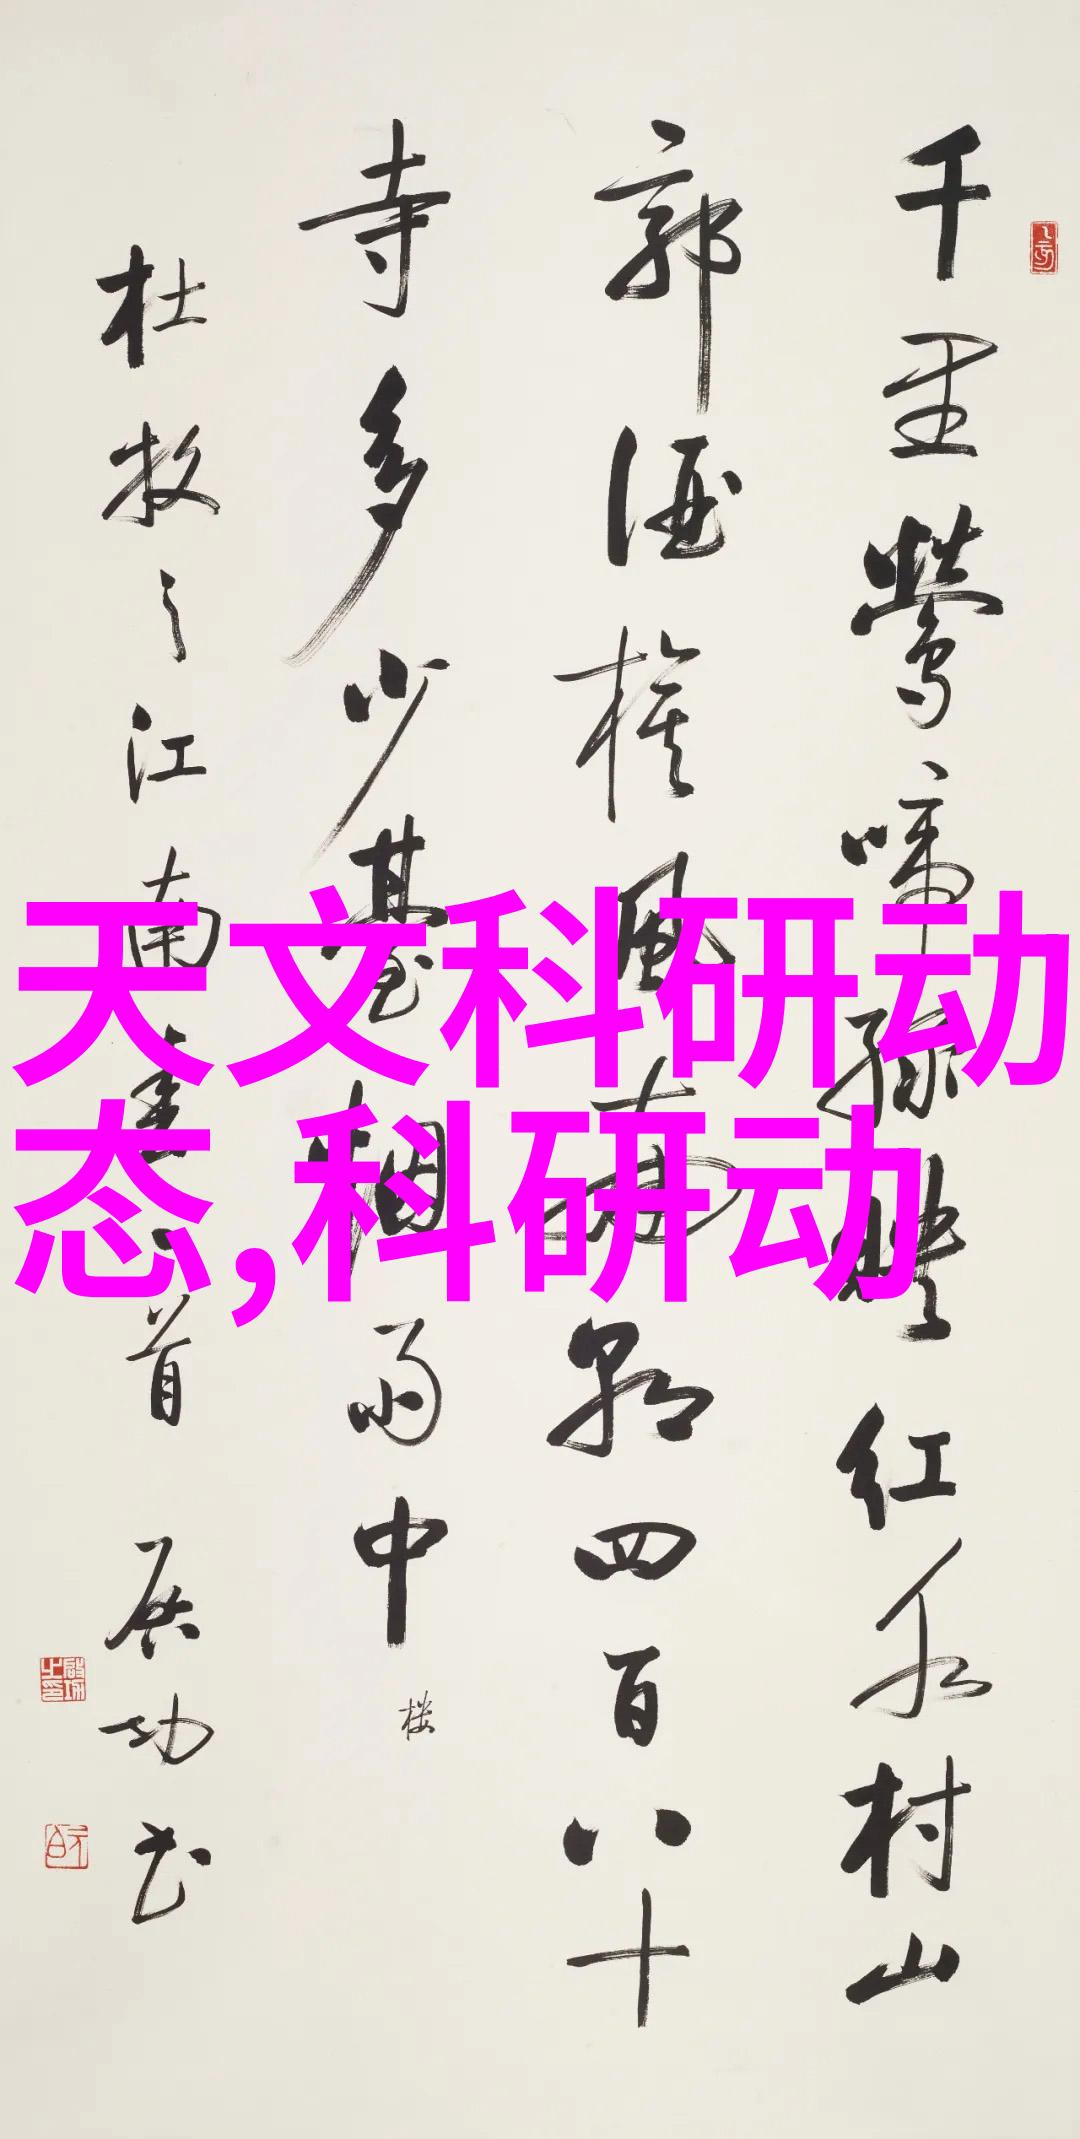 千里鶯啼緑暎红水村山
郭酒旗風南朝四百八十
寺多少臺烟雨中
楼
杜牧之江南春一首 启功书
天文科研动
态,科研动